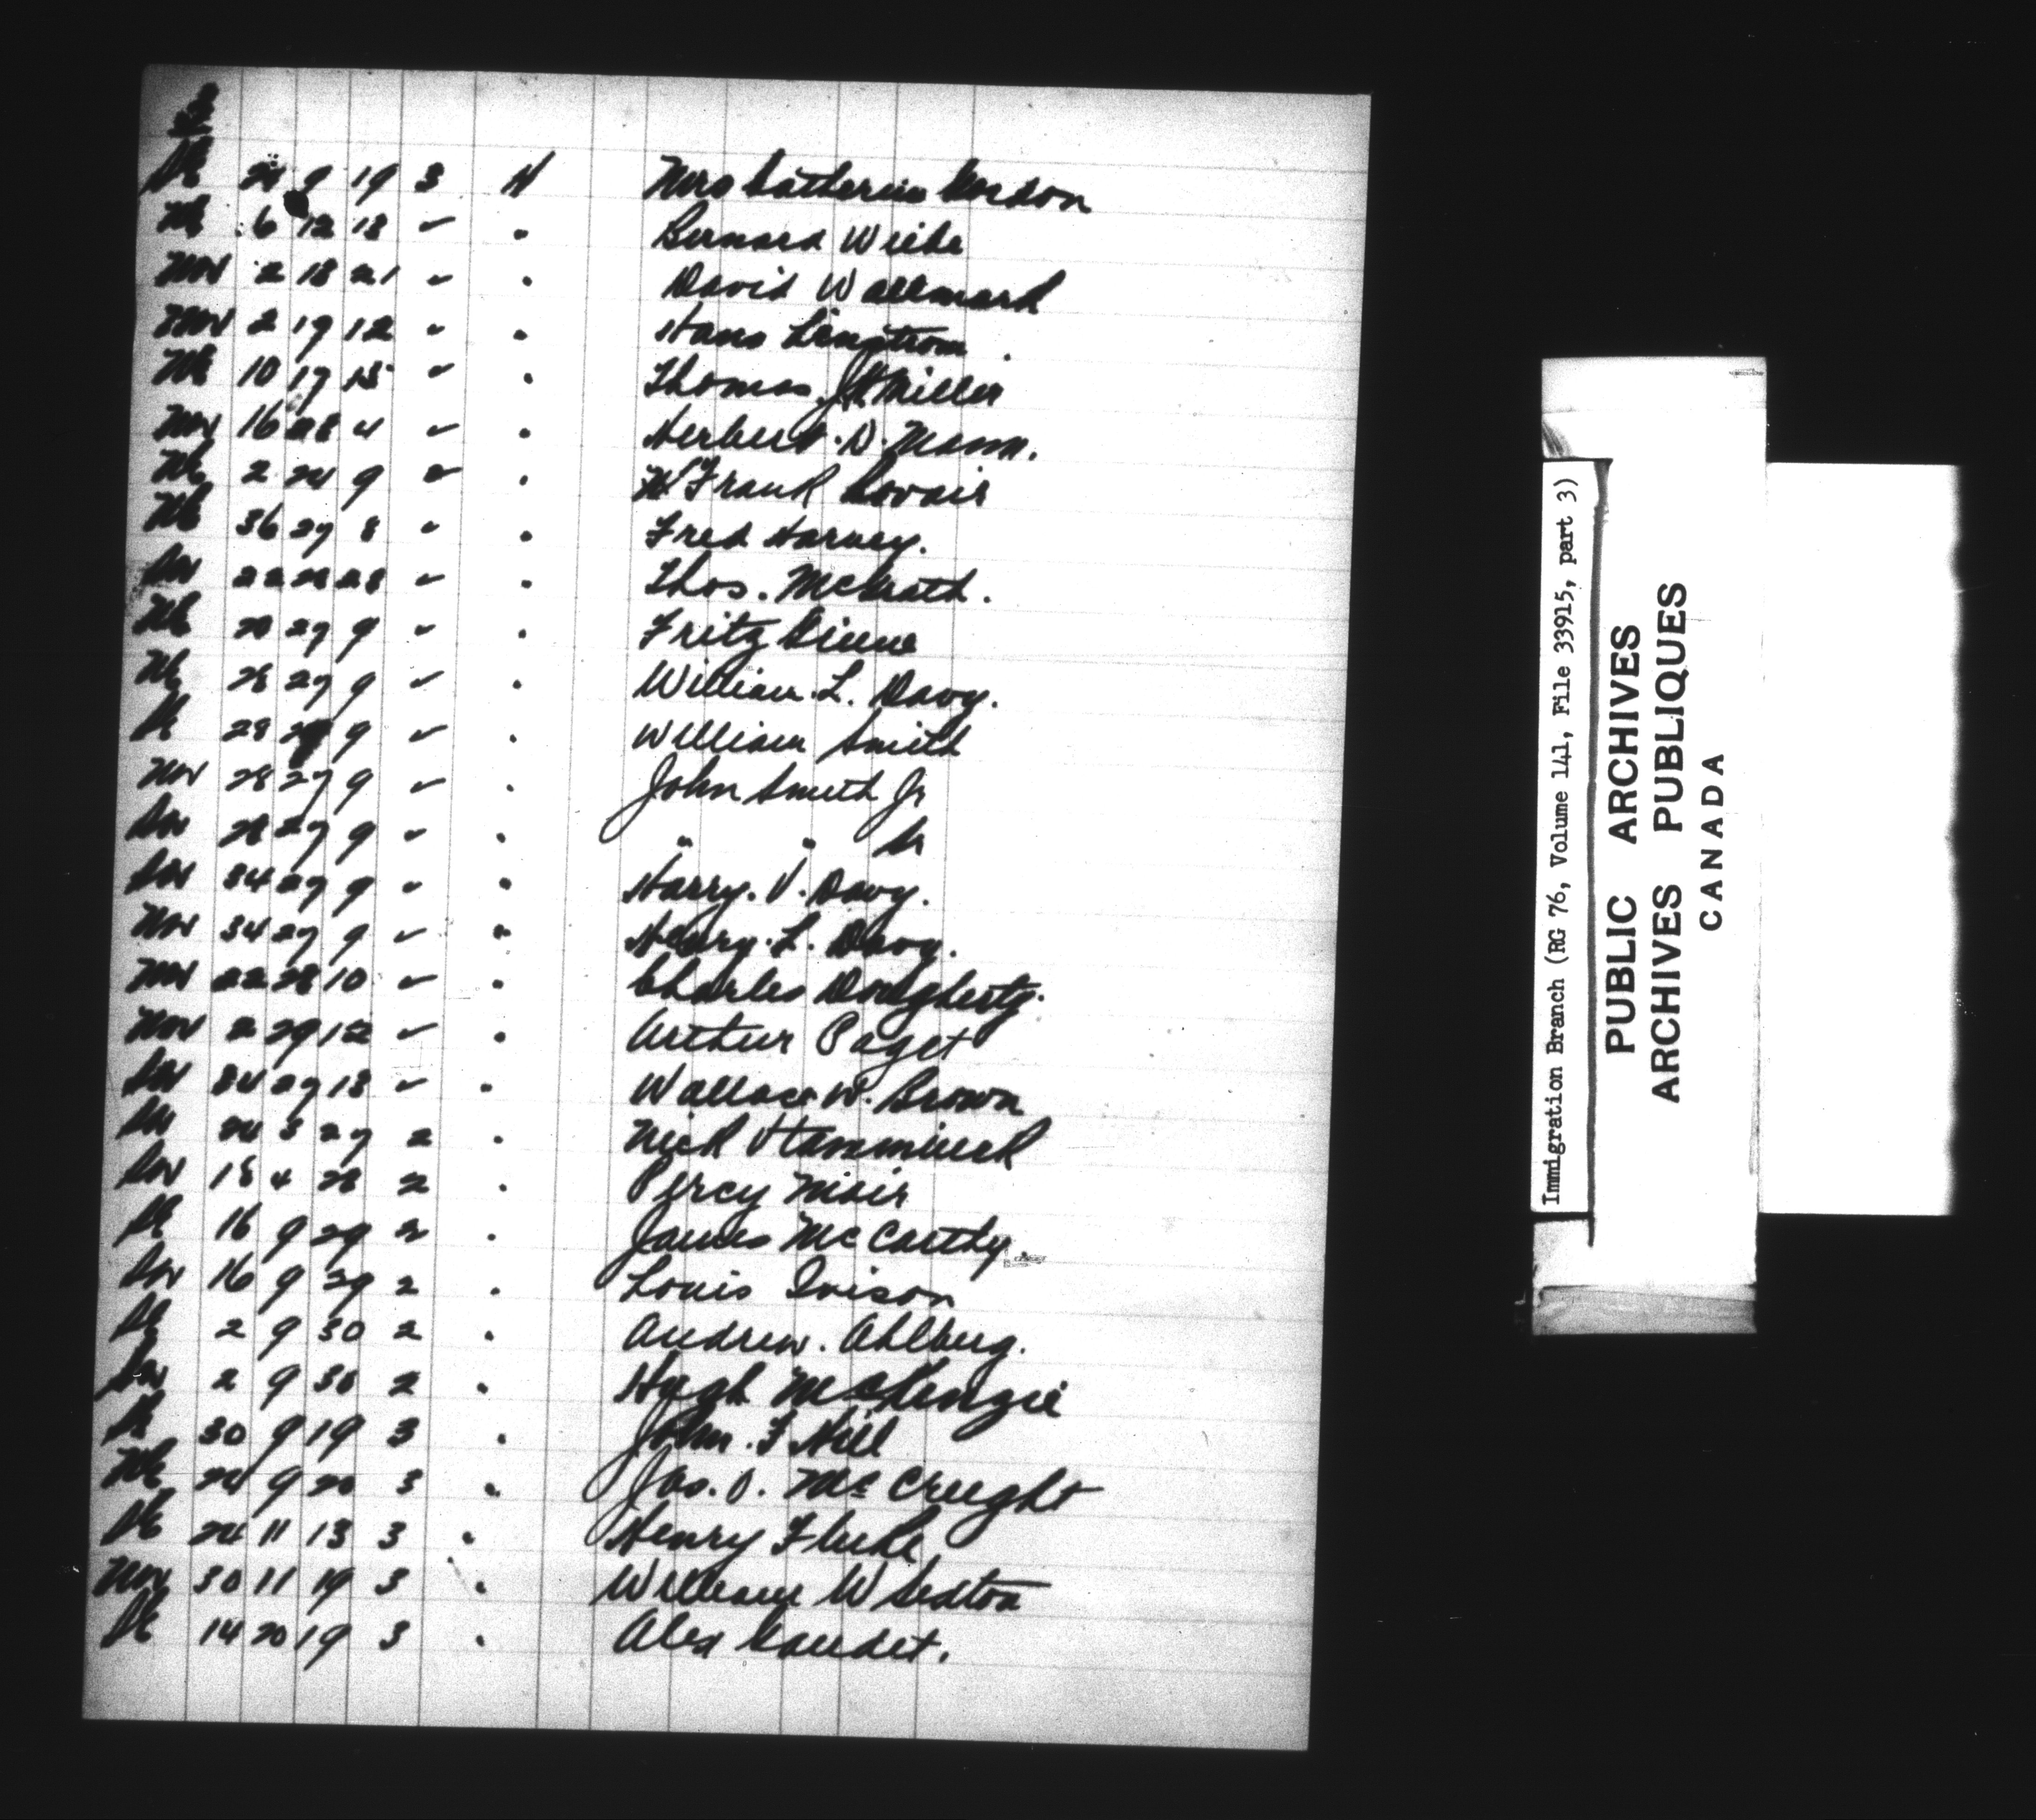 SE 24 9 19 3 H Mrs Catherine Gordon
NE 6 12 18 " " Bernard Wiebe
NW 2 18 21 " " David Wallmark
NW 2 19 12 " " Hans Lingstrom
NE 10 17 15 " " Thomas J Miller
NW 16 28 4 " " Herbert. D. Mann.
NE 2 24 9 " " Frank
NE 36 27 8 " " Fred Harvey.
SW 22 28 28 " " Thos. McGrath.
NE 20 27 9 " " Fritz
NE 28 27 9 " " William. L. Davy.
SE 28 9 " " William Smith
NW 28 27 9 " " John Smith Jr
SW 28 27 9 " " " " Sr
SW 34 27 9 " " Harry. V. Davy.
NW 34 27 9 " " Henry. L. Davy.
NW 22 28 10 " " Charles Dougherty.
NW 2 29 12 " " Arthur Paget
SW 34 27 13 " " Wallace W. Brown
24 3 27 2 " Nick
SW 18 4 28 2 " Percy Muir
SE 16 9 29 2 " James McCarthy.
SW 16 9 29 2 " Louis Ivison
SE 2 9 30 2 " Andrew. Ahlberg.
SW 2 9 30 2 " Hugh McKenzie
SE 30 9 19 3 " John. F Hill
NE 24 9 20 3 " Jas. O. McCreight
SE 24 11 13 3 " Henry
NW 30 11 19 3 " William W Sexton
SE 14 20 19 3 " Alex Gaudet.
Immigration Branch (RG 76, Volume 141, File 33915, part 3)
PUBLIC ARCHIVES
ARCHIVES PUBLIQUES
CANADA